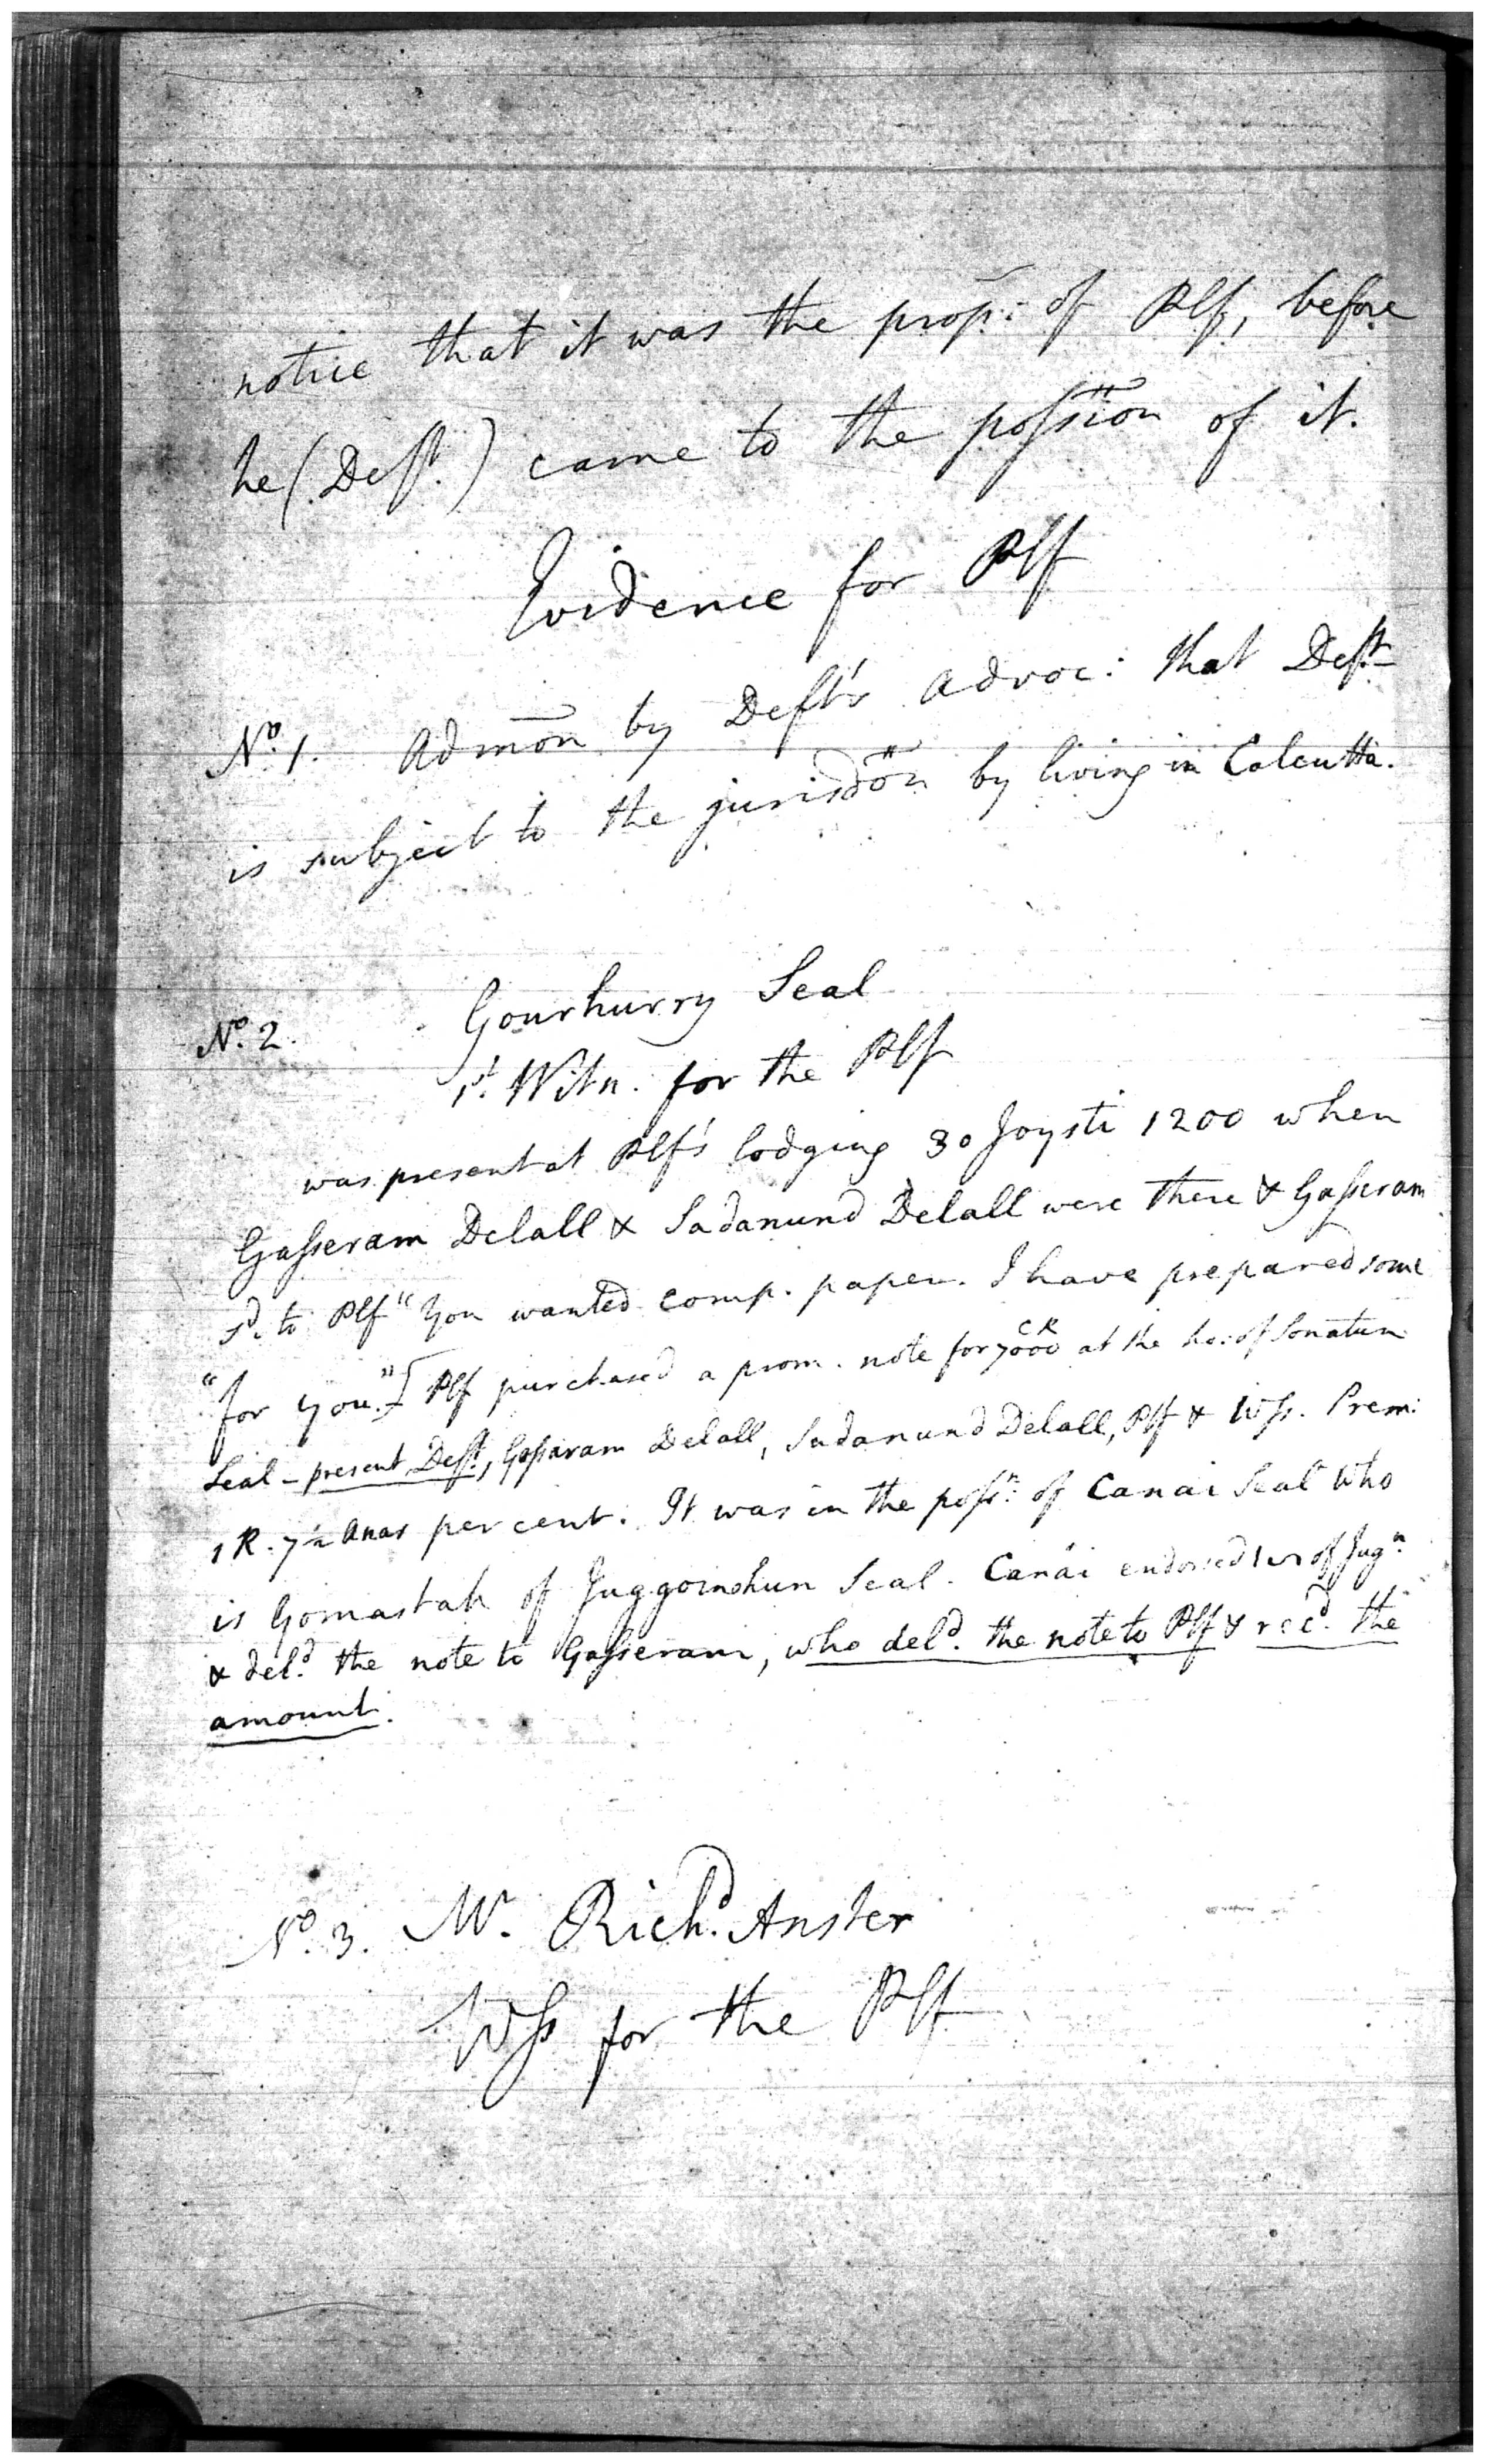 notice that it was the prop: of Plf, before
he (Deft.) came to the possion of it.
Evidence for Plf
No. 1. Admon by Deft's advoc: that Deft
is subject to the jurisdon by living in Calcutta.
No. 2. Gourhurry Seal
1st. Witn. for the Plf
was present at Plf's lodging 30 Joysti 1200 when
Gasseram Delall & Sadanund Delall were there & Gasseram
sd. to Plf "You wanted comp. paper. I have prepared some
"for you." [Plf purchased a prom. note for 7000 CR at the ho: of Sonatun
Seal – present Deft, Gasseram Delall, Sadanund Delall, Plf & Wss. Prem:
1 R. 7½ Anas per cent. It was in the possn: of Canai Seal who
is Gomastah of Juggomohun Seal. Canai endorsed of Jugn.
& deld. the note to Gasseram, who deld. the note to Plf & recd. the
amount.
No. 3. Mr. Richd. Anster
Wss for the Plf